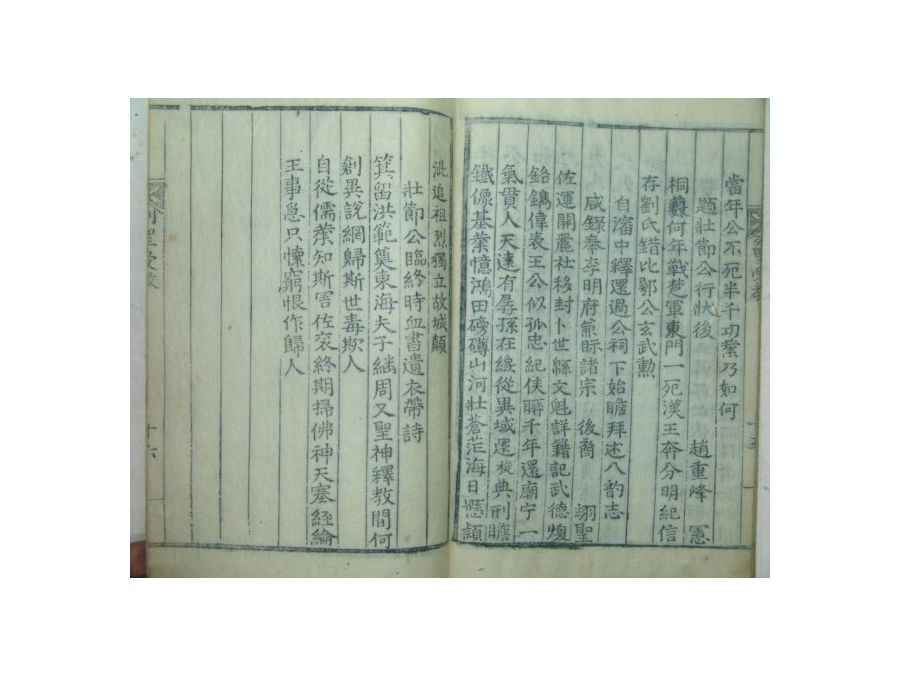 當年公不死半千功業乃如何
題壯節公行狀後
趙重峰 憲
桐藪何年戰楚軍東門一死漢王奔分明紀信
存劉氏錯比鄂公玄武勲
自瀋中釋還過公祠下始瞻拜述八韵志
感錄奉李明府兼眎諸宗 後裔 翊聖
佐運開麗社移封卜世縣文魁詳籍記武德煥
銘鐫偉表王公似孤忠紀侯聯千年還廟宇一
氣貫人天遠有孱孫在縱從異域還旋典刑瞻
鐵像基業憶鴻田磅礴山河壯蒼茫海日懸顙
泚追祖烈獨立故城顛
壯節公臨終時血書遺衣帶詩
箕留洪範奠東海夫子繼周又聖神釋教間何
創異說網歸斯世毒欺人
自從儒業知斯害佐袞終期掃佛神天塞經綸
王事急只懐窮恨作歸人
十六